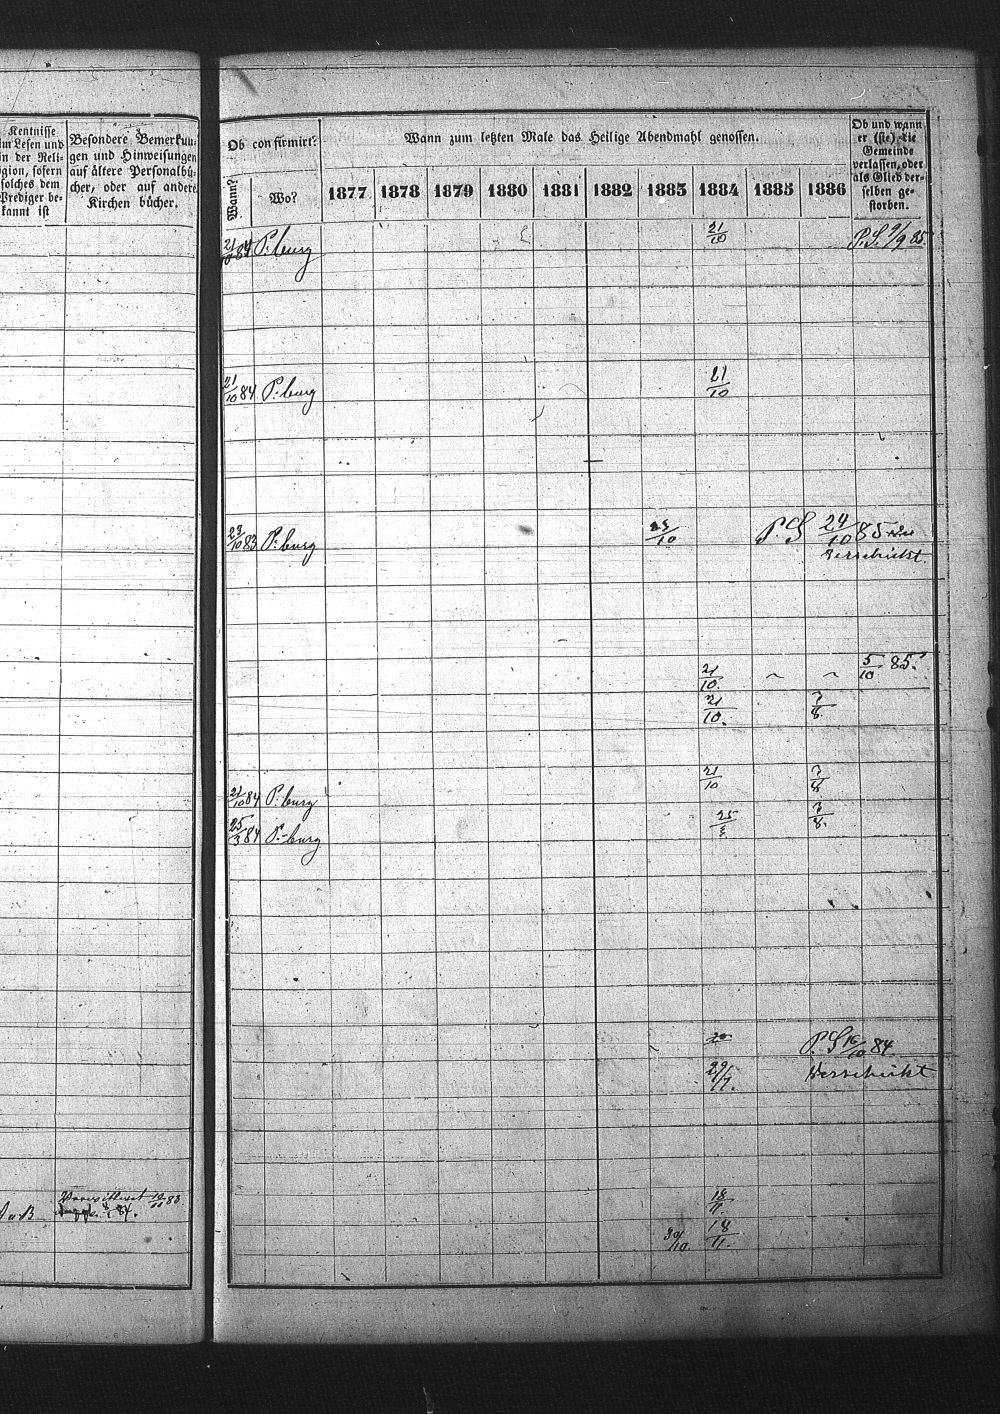 Kentnisse
im Lesen und
in der Reli-
gion, sofern
solches dem
Prediger be-
kannt ist
Besondere Bemerkun-
gen und Hinweisungen
auf ältere Personalbü-
cher, oder auf andere
Kirchen bücher.
Ob confirmirt?
Wann zum letzten Male das Heilige Abendmahl genossen.
Ob und wann
er (sie) die
Gemeinde
verlassen, oder
als Glied der-
selben ge-
storben.
Wann? Wo? 1877 1878 1879 1880 1881 1882 1883 1884 1885 1886
21/10 84 P:burg 21/10 P.S. 9/9 85.
21/10 84 P:burg 21/10
23/10 83 P:burg 23/10 P.S 24/10 85
Verschickt.
21/10. 5/10 85.
21/10. 3/8.
21/10 84 P:burg 21/10 3/8
25/3 84 P:-burg 25/3 3/8.
P.S 16/10 84
29/7. Verschickt
10/11 83
84. 18/11.
30/10 18/11.